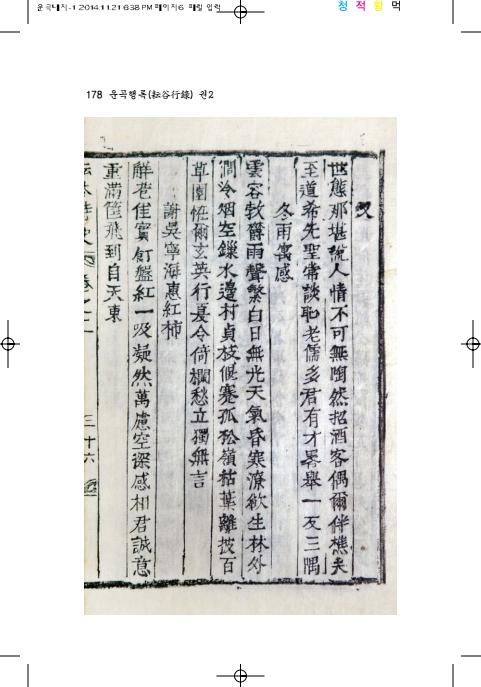 운곡대지-1 2014.11.21 6:38 PM 페이지6 매월 업력
청 적 황 먹
178 운곡행록(耘谷行錄) 권2
又
世態那堪說人情不可無陶然招酒客偶爾伴樵夫
至道希先聖常談恥老儒多君有才畧舉一反三隅
冬雨寓感
雲容敦欝雨聲繁白日無光天氣昏寒潦欲生林外
澗冷烟空鏁水邊村貞枝偃蹇孤松嶺枯葉離披百
草園恠爾玄英行夏令倚欄愁立獨無言
謝吳寧海惠紅柿
鮮苞佳實飣盤紅一吸凝然萬慮空深感相君誠意
重滿筐飛到自天東
卷之二
三十六